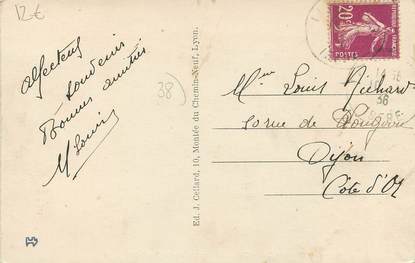 12€
affectueux
souvenir
Bonnes amitiés
M Louis
38)
Ed. J. Cellard, 10, Montée du Chemin-Neuf, Lyon.
20c
POSTES
36
Mme Louis Richard
rue de
Dijon
Côte d'Or